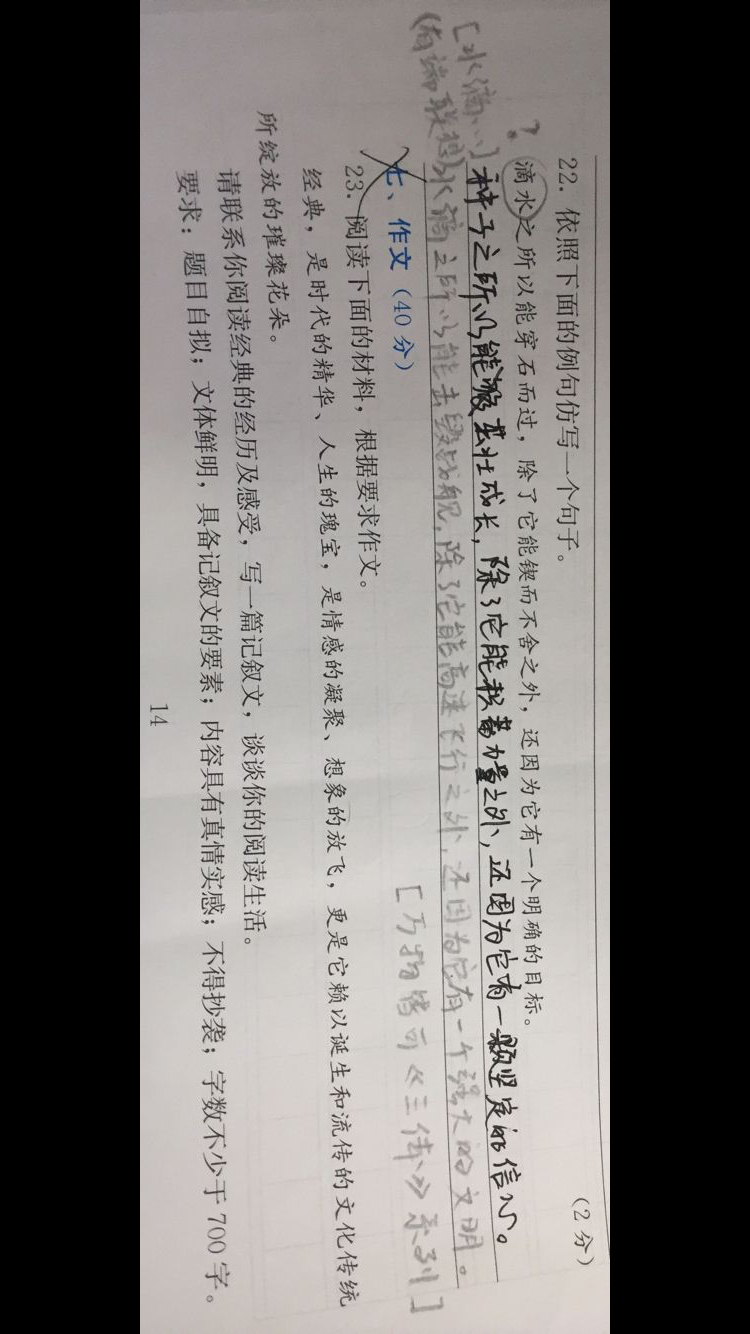 22. 依照下面的例句仿写一个句子。(2分)
?
滴水之所以能穿石而过，除了它能锲而不舍之外，还因为它有一个明确的目标。
[水滴…]
种子之所以能够茁壮成长，除了它能积蓄力量之外，还因为它有一颗坚定的信心。
水滴之所以能去毁战舰，除了它能高速飞行之外，还因为它有一个强大的文明。
[万物皆可《三体》系列]
七、作文（40分）
23. 阅读下面的材料，根据要求作文。
经典，是时代的精华、人生的瑰宝，是情感的凝聚、想象的放飞，更是它赖以诞生和流传的文化传统
所绽放的璀璨花朵。
请联系你阅读经典的经历及感受，写一篇记叙文，谈谈你的阅读生活。
要求：题目自拟；文体鲜明，具备记叙文的要素；内容具有真情实感；不得抄袭；字数不少于700字。
14